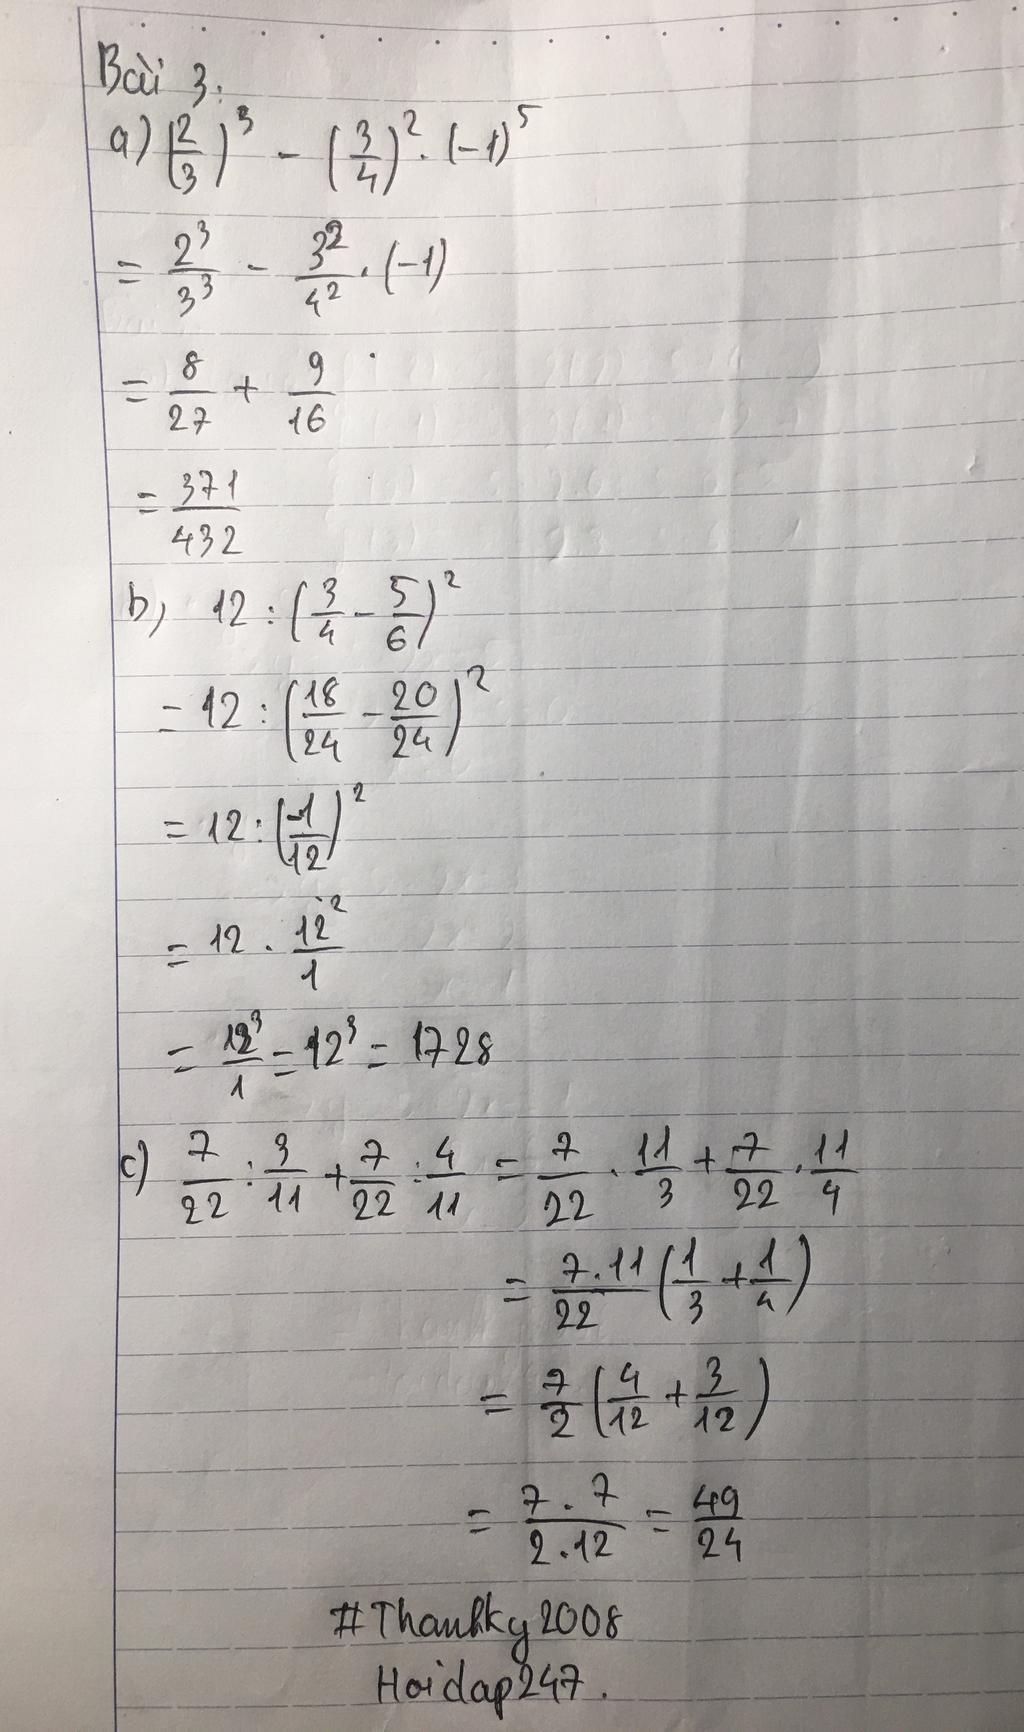 Bài 3:
a) (2/3)³ - (3/4)² . (-1)⁵
= 2³/3³ - 3²/4² . (-1)
= 8/27 + 9/16
= 371/432
b) 12 : (3/4 - 5/6)²
= 12 : (18/24 - 20/24)²
= 12 : (-1/12)²
= 12 . 12²/1
= 12³/1 = 12³ = 1728
c) 7/22 : 3/11 + 7/22 : 4/11 = 7/22 . 11/3 + 7/22 . 11/4
= 7.11/22 (1/3 + 1/4)
= 7/2 (4/12 + 3/12)
= 7 . 7/2 . 12 = 49/24
#Thanhky2008
Hoidap247.